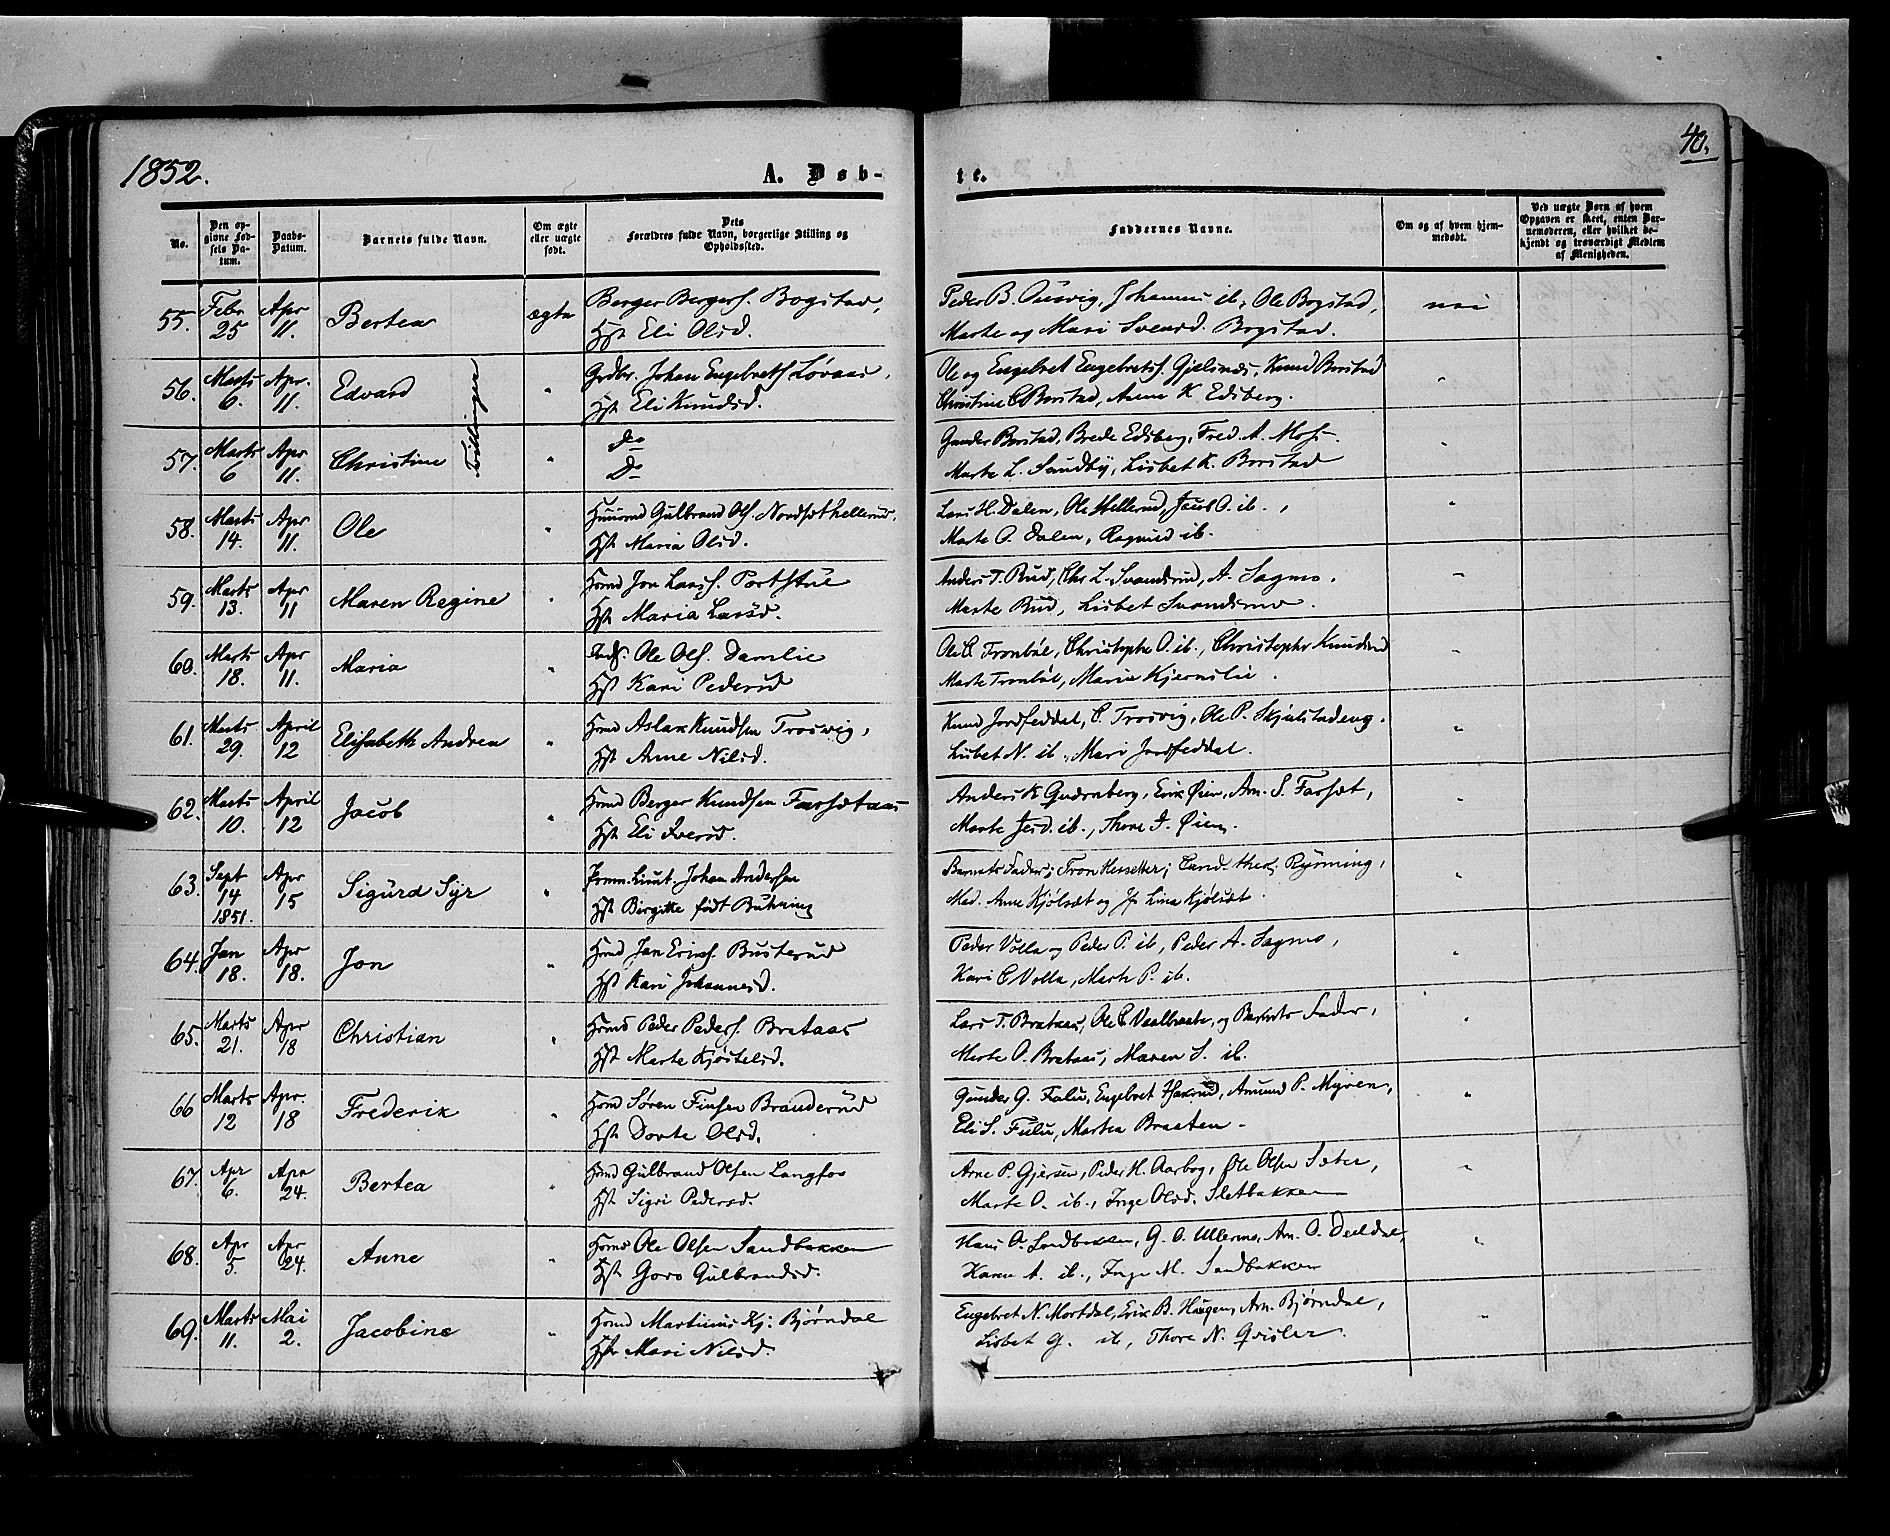 1852.
A. Døb-
te.
40.
No.
Den opgivne Fødsels Datum.
Daabs-Datum.
Barnets fulde Navn.
Om ægte eller uægte født.
Dets Forældres fulde Navn, borgerlige Stilling og Opholdssted.
Faddernes Navne.
Om og af hvem hjemmedøbt.
Ved uægte Børn af hvem Opgaven er skeet, enten Barnemoderen, eller hvilket bekjendt og troværdigt Medlem af Menigheden.
55. Febr 25 Apr 11. Bertea ægte Berger Bergers. Bogstad,
Hst Eli Olsd.
Peder B. Ousvig, Johannes ib, Ole Bogstad,
Marte og Mari Svensd. Bogstad.
nei
56. Marts 6. Apr. 11. Edvard " Grdbr. Johan Engebrets Løvaas,
Hst. Eli Knudsd.
Tvillinger
Ole og Engebret Engebrets. Gjelsnes, Knud Borstad
Christine C Borstad, Anne K. Edsberg.
"
57. Marts 6 Apr 11. Christine " Do
Do
Gunder Borstad, Brede Edsberg, Fred. A. Mos.
Marte L. Sundby, Lisbet K. Borstad
"
58. Marts 14. Apr 11. Ole " Gulbrand Ols. Nordsethellerud.
Hst Maria Olsd.
Lars H. Dalen, Ole Hellerud, Jacob O. ib.,
Marte O. Dalen, Ragnild ib.
"
59. Marts 13. Apr 11 Maren Regine " Hmd Jon Larss. Portstue
Hst. Maria Larsd.
Anders T. Rud, Chr L. Svandsrud, A. Sagmo.
Marte Rud, Lisbet Svandsmo.
"
60. Marts 18. Apr 11. Maria " Ole Ols. Damlie
Hst Kari Pedersd
Ole C Fronbøl, Christopher O. ib., Christopher Knudsrud
Marte Tronbøl, Maria Kjernslie.
61. Marts 29. April 12 Elisabeth Andrea " Hmd Aslak Knudsen Trosvig,
Hst Anne Nilsd.
Knud Jordfeddal, C. Trosvig, Ole P. Skjulstadeng.
Lisbet N. ib., Mari Jordfeddal.
"
62. Marts 10. April 12 Jacob " Hmd Berger Knudsen Farsetaas
Hst Eli Iversd.
Anders K Gudrnberg, Erik Øien, Arn. S. Farset,
Marte Jesd. ib., Thore I. Øien.
"
63. Sept 14 1851. Apr 15 Sigurd Syr " Prem. Lieut. Johan Andersen
Hst Birgitte født Buhring
Barnets Fader; Tron Hessetter; Cand. theol Rynning,
Mad. Anne Kjølsæt og Jf Lina Kjølsæt.
"
64. Jan 18. Apr 18. Jon " Hmd Jan Erics. Busterud
Hst Kari Johannesd.
Peder Volla og Peder P. ib, Peder A. Sagmo,
Kari C Volla, Marte P. ib.
"
65. Marts 21. Apr 18 Christian " Hmd Peder Peders. Brataas
Hst Marte Kjøstelsd.
Lars T. Brataas, Ole C Vaalbraate, og Barnets Fader,
Marte O. Brataas, Maren S. ib.
"
66 Marts 12 Apr. 18 Frederik " Hmd Søren Finsen Branderud
Hst Dorte Olsd.
Gunder G. Fulu, Engebret Haxrud, Amund P. Myren,
Eli S. Fulu, Martea Braaten.
"
67. Apr 6. Apr 24. Bertea " Hmd Gulbrand Olsen Langfos
Hst Sigri Pedersd.
Arne P. Gjersøen, Peder H. Aarbog, Ole Olsen Sæter,
Marte O. ib., Inge Olsd. Sletbakken
"
68. Apr 5. Apr 24. Anne " Hmd Ole Olsen Sandbakken
Hst Goro Gulbrandsd.
Hans O. Sandbakken, G. O. Ullermo, Arn. O. Deildal,
Karen A. ib., Inge M. Sandbakken
"
69. Marts 11. Mai 2. Jacobine " Hmd Martinus Kj: Bjørndal
Hst Mari Nilsd.
Engebret N. Mortdal, Erik B. Haugen, Arn. Bjørndal,
Lisbet G. ib, Thore N. Qvisler.
"